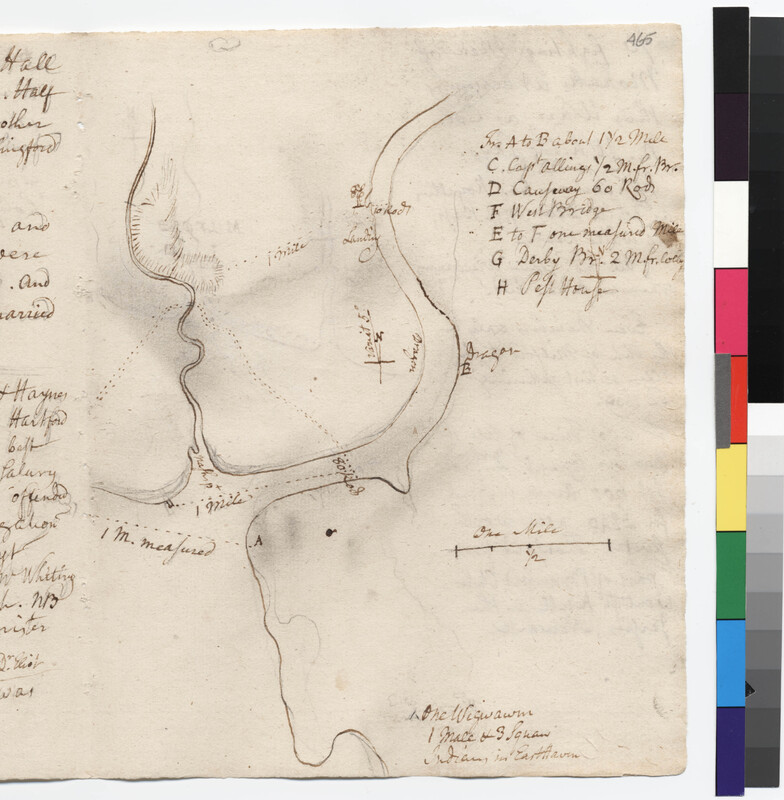 465
Hall
. Half
other
llingford
and
were
. And
married
& Haynes
Hartford
best
Salary
offended
Mr Whiting
h. NB
nister
Dr. Eliot
was
Fr. A to B about 1 1/2 Mile
C. Capt allings 1/2 M. fr. Br.
D Causeway 60 Rods
F West Bridge
E to F one measured Mile
G Derby Brg. 2 M. fr. Colle
H Pest House
Rods
Landing
1 mile
N
Dragon
Dragon
E
80 Rod
1 Mile
1 M. measured
A
One Mile
1/2
One Wigwawm
1 Male & 3 Squaw
Indians in East Haven